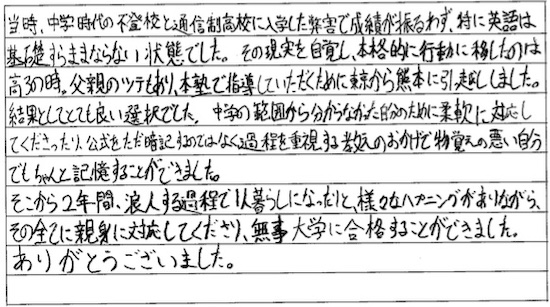 当時、中学時代の不登校と通信制高校に入学した弊害で成績が振るわず、特に英語は
基礎すらままならない状態でした。その現実を自覚し、本格的に行動に移したのは
高3の時。父親のツテもあり、本塾で指導していただくために東京から熊本に引っ越しました。
結果としてとても良い選択でした。中学の範囲から分からなかった自分のために柔軟に対応し
てくださったり、公式をただ暗記するのではなく過程を重視する教えのおかげで物覚えの悪い自分
でもちゃんと記憶することができました。
そこから2年間、浪人する過程で1人暮らしになったりと、様々なハプニングがありながら、
その全てに親身に対応してくださり、無事大学に合格することができました。
ありがとうございました。